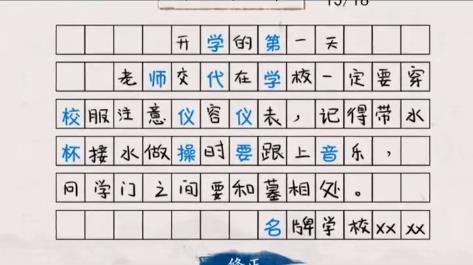 13/18
开学的第一天
老师交代在学校一定要穿
校服注意仪容仪表，记得带水
杯接水做操时要跟上音乐，
问学门之间要和墓相处。
名牌学校xx xx
修正